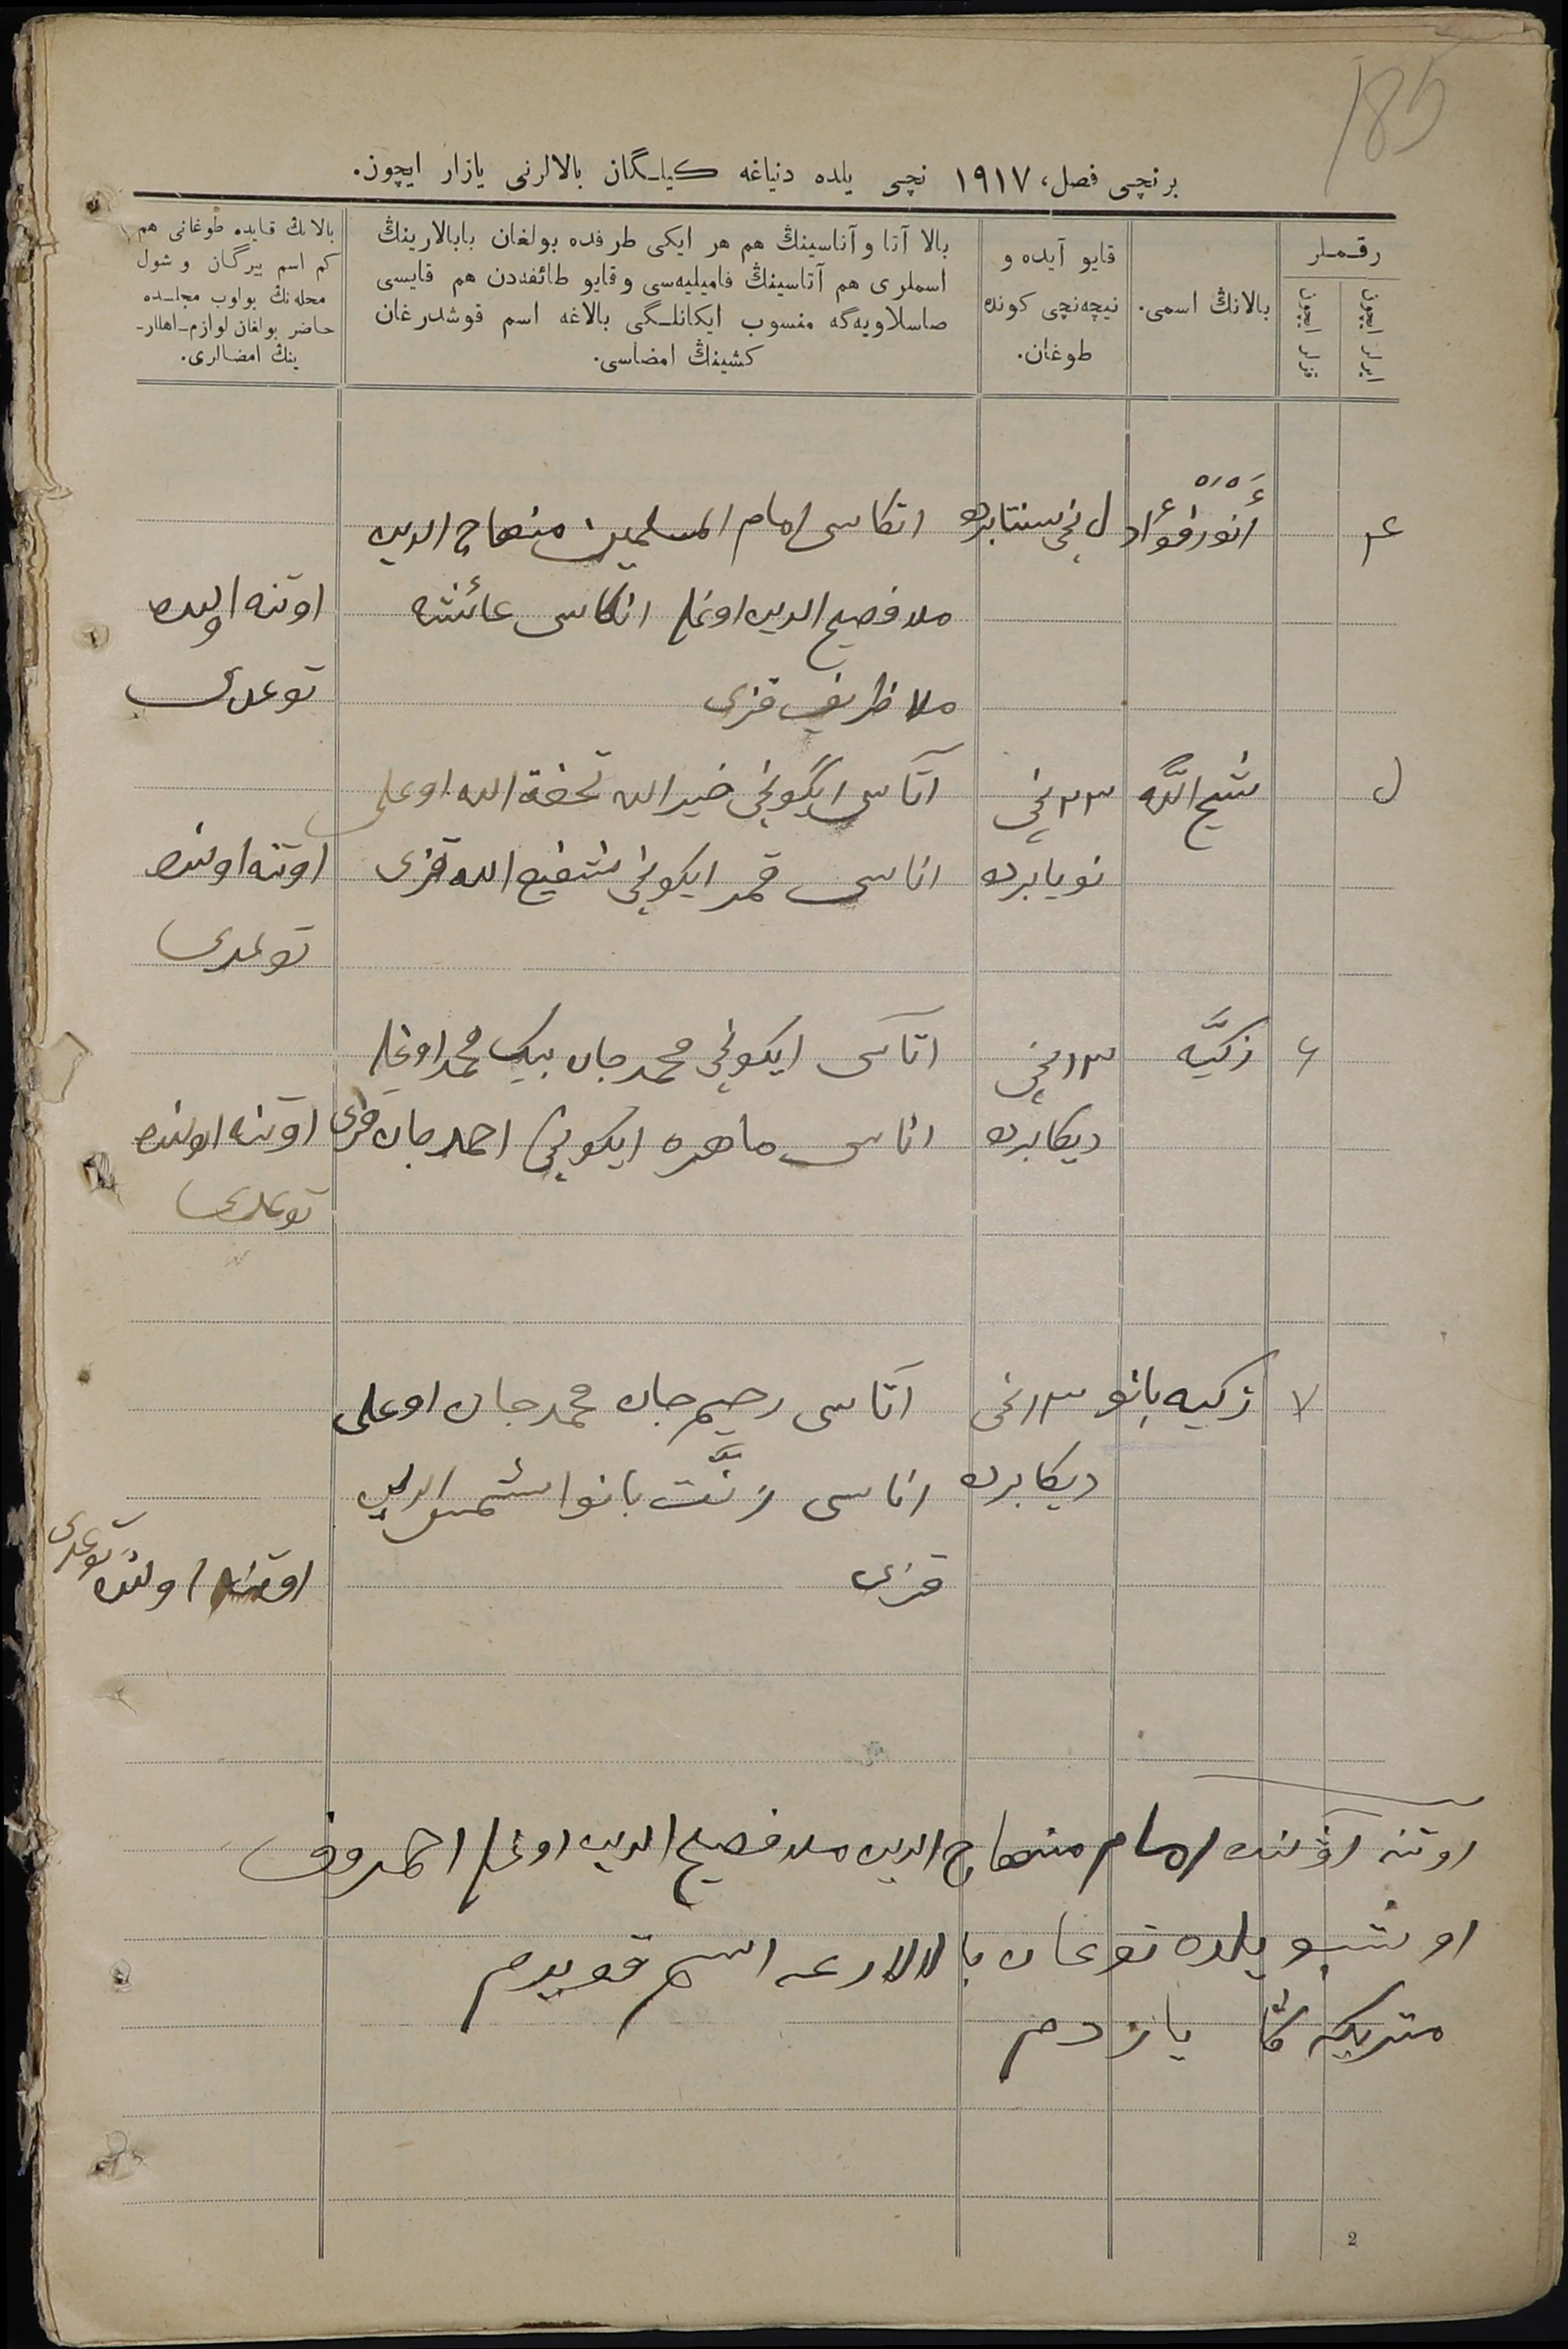 185
برنچی فصل، ۱۹۱۷ نچی یلده دنیاغه کیلگان بالالرنی یازار ایچون.
رقملر
ایرلر ایچون
قزلر ایچون
بالانڭ اسمی.
قایو آیده و
نیچه‌نچی کونده
طوغان.
بالا آتا و آناسینڭ هم هر ایکی طرفده بولغان بابالارینڭ
اسملری هم آتاسینڭ فامیلیه‌سی و قایو طائفه‌دن هم قایسی
صاسلاویه‌گه منسوب ایکانلگی بالاغه اسم قوشدرغان
کشینڭ امضاسی.
بالانڭ قایده طوغانی هم
کم اسم بیرگان و شول
محله‌نڭ بولوب مجلسده
حاضر بولغان لوازم اهللار-
ینڭ امضالری.
۴ أَنْوَرْفُؤاد ل نچی سنتابرده اتكاسی امام المسلمین منهاج الدین
ملا فصیح الدین اوغلی انكاسی عائشه
ملا ظریف قزی
اوتنه اولنده
توغدی
ل شیح اللّه ۲۳ نچی آتاسی ایگونچی خیرالله تحفة الله اوغلی
نویابرده اناسی قمر ایکونچی شفیع الله قزی اوتنه اولنده
توغدی
۶ زکیّه ۱۳ نچی اتاسی ایکونچی محمدجان بیک محمد اوغلی
دیکابرده اناسی ماهره ایکونچی احمدجان قزی اوتنه اولنده
توغدی
۷ زکیه بانو ۱۳ نچی آتاسی رحیم جان محمدجان اوغلی
دیکابرده اناسی زنّت بانو شمس الدین
قزی
اوتنه اولنده توغدی
اوتنه آولنده امام منهاج الدین ملا فصیح الدین اوغلی احمروف
اوشبو یلده توغان بالالارغه اسم قویدم
متریکه گا یازدم
2